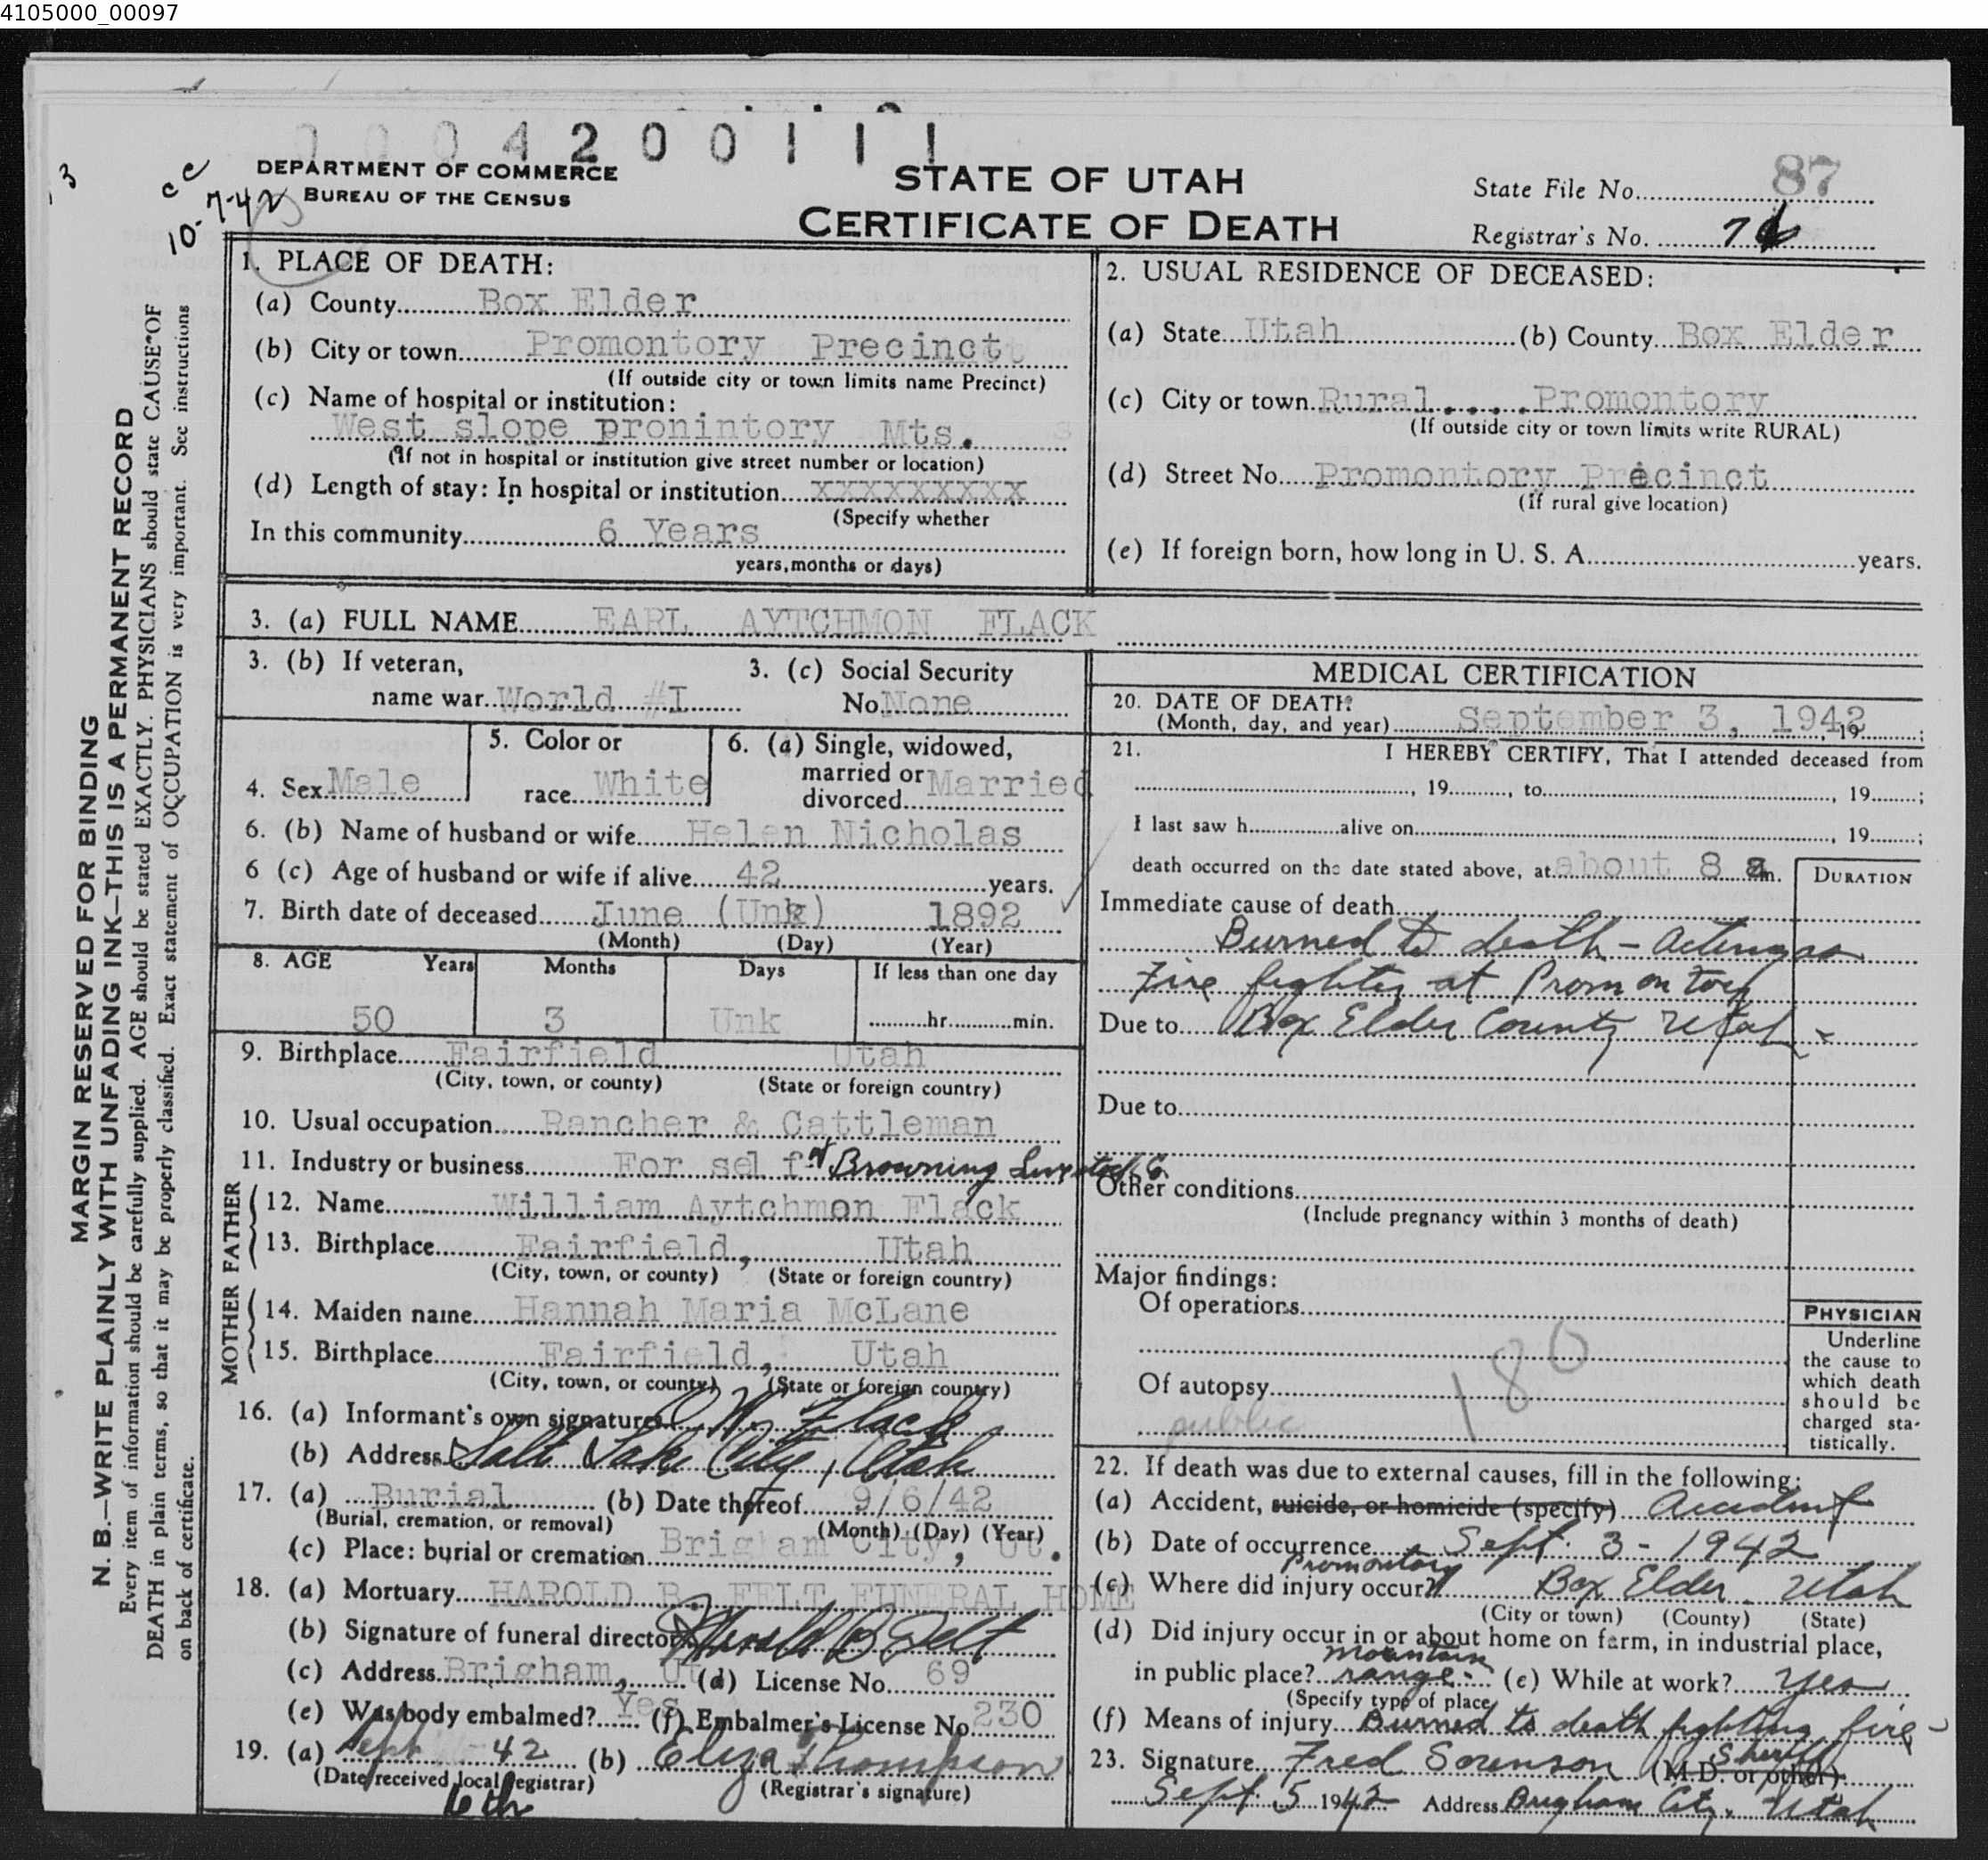 4105000_00097
0004200111
3
cc
10-7-42
DEPARTMENT OF COMMERCE
BUREAU OF THE CENSUS
STATE OF UTAH
CERTIFICATE OF DEATH
State File No. 87
Registrar's No. 76
MARGIN RESERVED FOR BINDING
N. B.—WRITE PLAINLY WITH UNFADING INK—THIS IS A PERMANENT RECORD
Every item of information should be carefully supplied. AGE should be stated EXACTLY. PHYSICIANS should state CAUSE OF
DEATH in plain terms, so that it may be properly classified. Exact statement of OCCUPATION is very important. See instructions
on back of certificate.
1. PLACE OF DEATH:
(a) County Box Elder
(b) City or town Promontory Precinct
(If outside city or town limits name Precinct)
(c) Name of hospital or institution:
West slope pronintory Mts.
(If not in hospital or institution give street number or location)
(d) Length of stay: In hospital or institution xxxxxxxxx
(Specify whether
In this community 6 Years
years, months or days)
2. USUAL RESIDENCE OF DECEASED:
(a) State Utah (b) County Box Elder
(c) City or town Rural.....Promontory
(If outside city or town limits write RURAL)
(d) Street No. Promontory Precinct
(If rural give location)
(e) If foreign born, how long in U. S. A. years.
3. (a) FULL NAME EARL AYTCHMON FLACK
3. (b) If veteran,
name war World #I
3. (c) Social Security
No. None
4. Sex Male
5. Color or
race White
6. (a) Single, widowed,
married or
divorced Married
6. (b) Name of husband or wife Helen Nicholas
6 (c) Age of husband or wife if alive 42 years.
7. Birth date of deceased June (Unk) 1892
(Month) (Day) (Year)
8. AGE Years Months Days If less than one day
50 3 Unk hr. min.
9. Birthplace Fairfield Utah
(City, town, or county) (State or foreign country)
10. Usual occupation Rancher & Cattleman
11. Industry or business For self Browning Livestock Co
FATHER
12. Name William Aytchmon Flack
13. Birthplace Fairfield, Utah
(City, town, or county) (State or foreign country)
MOTHER
14. Maiden name Hannah Maria McLane
15. Birthplace Fairfield, Utah
(City, town, or county) (State or foreign country)
16. (a) Informant's own signature Flack
(b) Address Salt Lake City, Utah
17. (a) Burial (b) Date thereof 9/6/42
(Burial, cremation, or removal) (Month) (Day) (Year)
(c) Place: burial or cremation Brigham City, Ut.
18. (a) Mortuary HAROLD B. FELT FUNERAL HOME
(b) Signature of funeral director Harold B Felt
(c) Address Brigham, Ut (d) License No. 69
(e) Was body embalmed? Yes (f) Embalmer's License No. 230
19. (a) Sept 42 (b) Eliza Thompson
(Date received local registrar) (Registrar's signature)
6th
MEDICAL CERTIFICATION
20. DATE OF DEATH:
(Month, day, and year) September 3, 1942, 19 ;
21. I HEREBY CERTIFY, That I attended deceased from
, 19 , to , 19 ;
I last saw h alive on , 19 ;
death occurred on the date stated above, at about 8 a m.
DURATION
Immediate cause of death
Burned to death - acting as
Fire fighter at Promontory
Due to Box Elder County Utah -
Due to
Other conditions
(Include pregnancy within 3 months of death)
Major findings:
Of operations
Of autopsy
public
180
PHYSICIAN
Underline
the cause to
which death
should be
charged sta-
tistically.
22. If death was due to external causes, fill in the following:
(a) Accident, suicide, or homicide (specify) Accident
(b) Date of occurrence Sept. 3 - 1942
(c) Where did injury occur? Promontory Box Elder Utah
(City or town) (County) (State)
(d) Did injury occur in or about home on farm, in industrial place,
in public place? mountain range. (e) While at work? yes
(Specify type of place)
(f) Means of injury Burned to death fighting fire -
23. Signature Fred Sorenson Sheriff (M.D. or other)
Sept. 5 1942 Address Brigham City, Utah